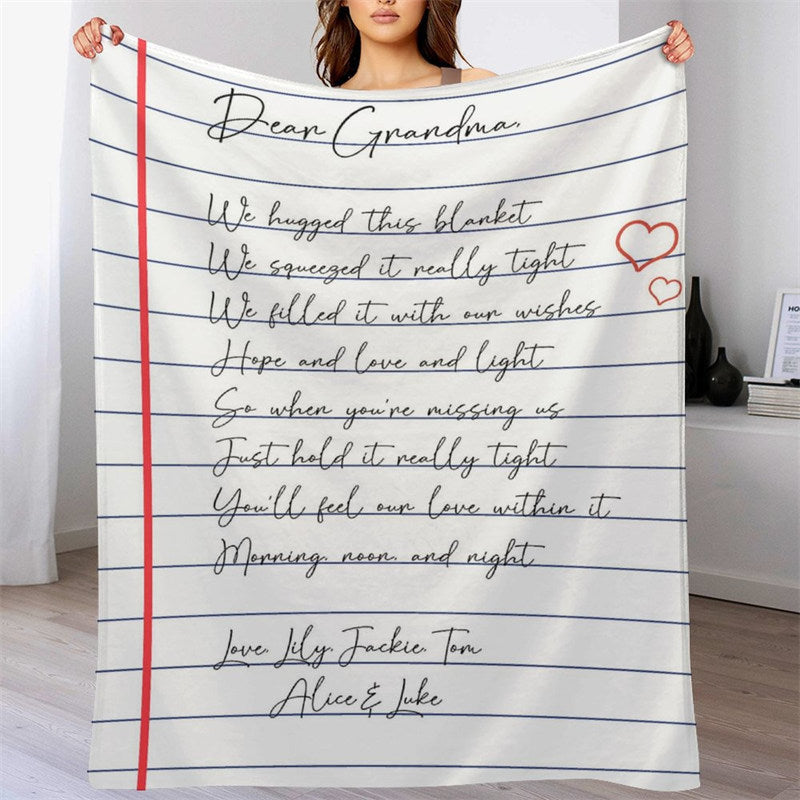 Dear Grandma,
We hugged this blanket
We squeezed it really tight
We filled it with our wishes
Hope and love and light
So when you're missing us
Just hold it really tight
You'll feel our love within it
Morning, noon, and night
Love, Lily, Jackie, Tom
Alice & Luke
HO